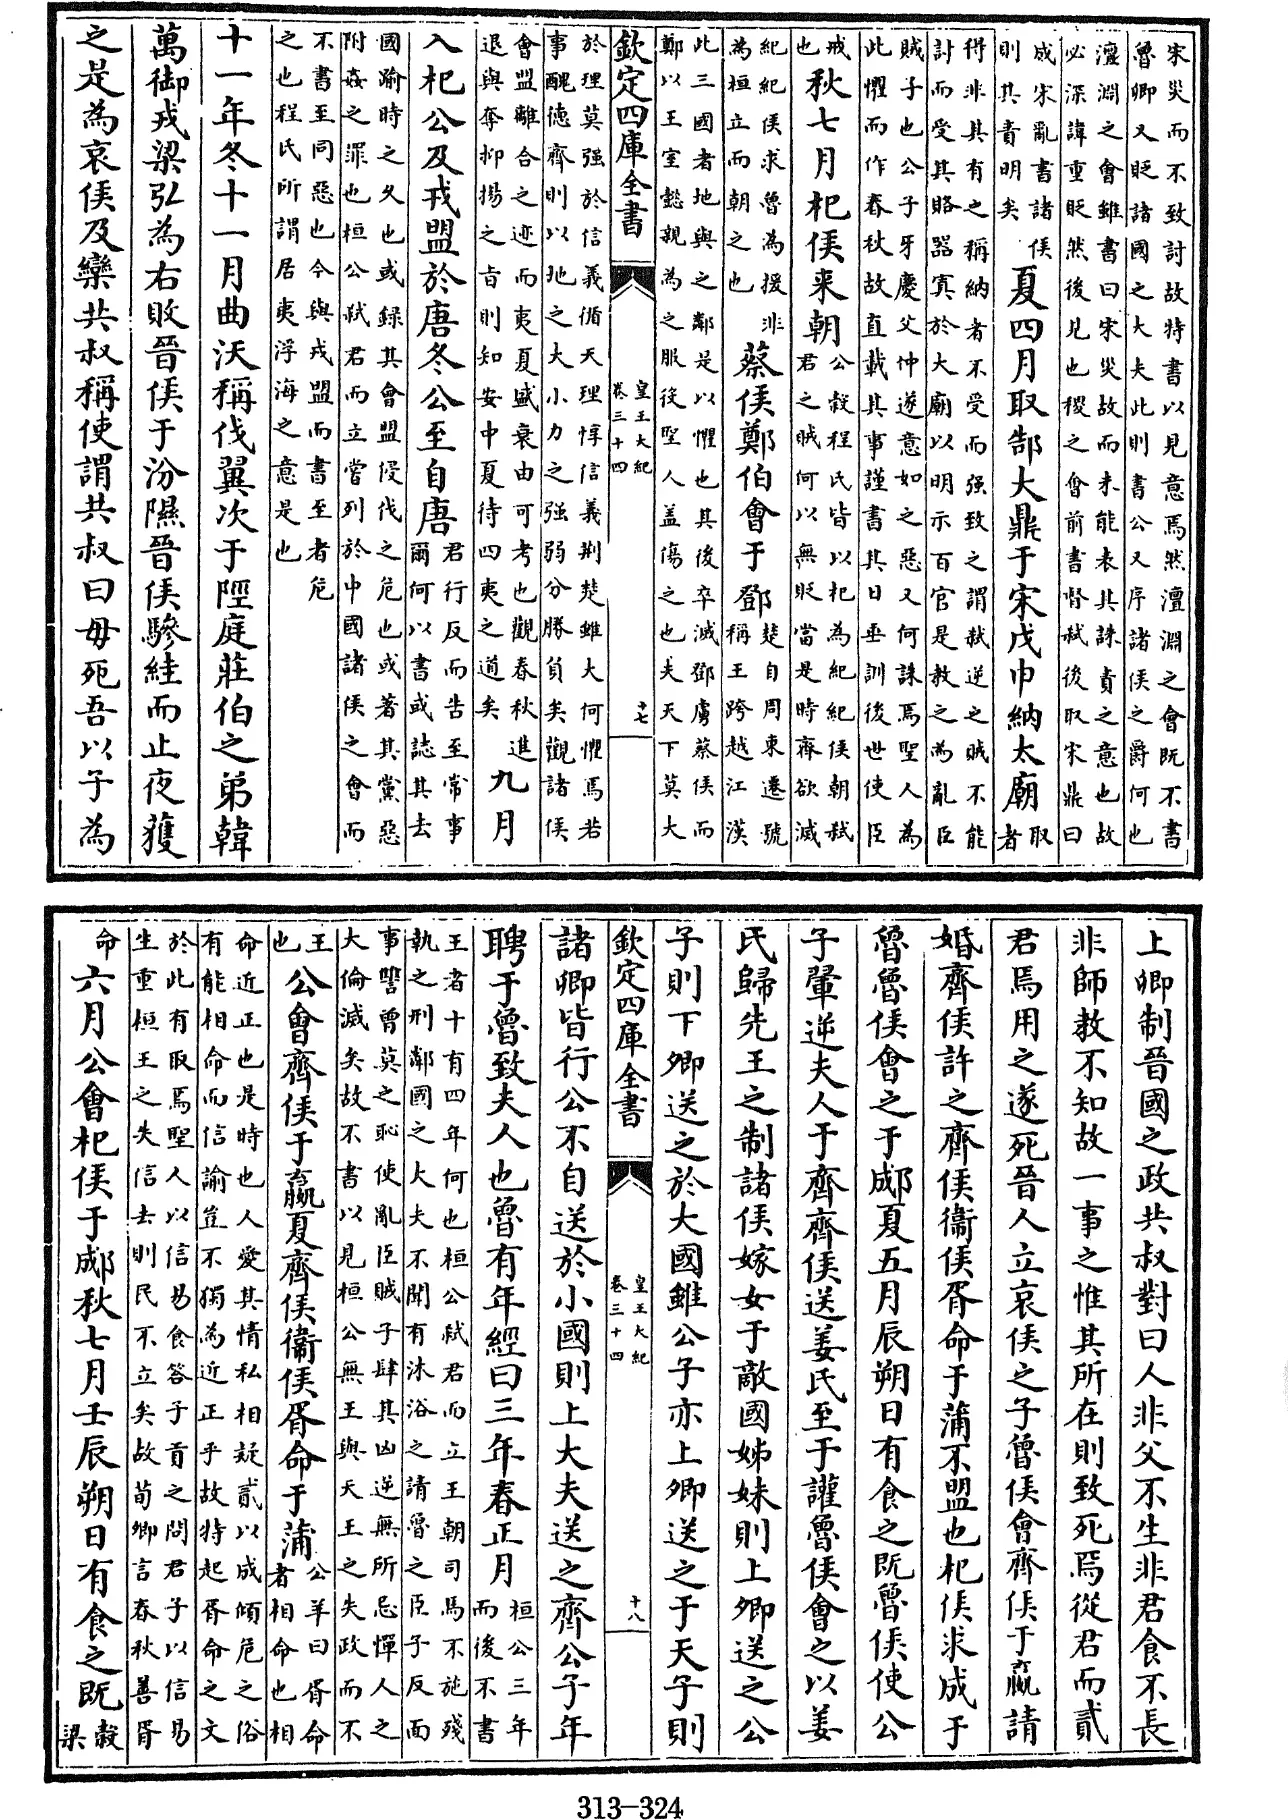 宋災而不致討故特書以見意焉然澶淵之會既不書
魯卿又貶諸國之大夫此則書公又序諸侯之爵何也
澶淵之會雖書曰宋災故而未能表其誅責之意也故
必深諱重貶然後見也稷之會前書督弑後取宋鼎曰
成宋亂書諸侯
則其責明矣
夏四月取郜大鼎于宋戊申納太廟
取
者
得非其有之稱納者不受而强致之謂弑逆之賊不能
討而受其賂器寘於大廟以明示百官是教之為亂臣
賊子也公子牙慶父仲遂意如之惡又何誅焉聖人為
此懼而作春秋故直載其事謹書其日垂訓後世使臣
戒
也
秋七月杞侯来朝
公穀程氏皆以杞為紀紀侯朝弑
君之賊何以無貶當是時齊欲滅
紀紀侯求魯為援非
為桓立而朝之也
蔡侯鄭伯會于鄧
楚自周東遷號
稱王跨越江漢
此三國者地與之鄰是以懼也其後卒滅鄧虜蔡侯而
鄭以王室懿親為之服役聖人蓋傷之也夫天下莫大
欽定四庫全書
皇王大紀
卷三十四
十七
於理莫强於信義循天理惇信義荆楚雖大何懼焉若
事醜徳齊則以地之大小力之强弱分勝負矣觀諸侯
會盟離合之迹而夷夏盛衰由可考也觀春秋進
退與奪抑揚之旨則知安中夏待四夷之道矣
九月
入杞公及戎盟於唐冬公至自唐
君行反而告至常事
爾何以書或誌其去
國踰時之久也或録其會盟侵伐之危也或著其黨惡
附姦之罪也桓公弑君而立嘗列於中國諸侯之會而
不書至同惡也今與戎盟而書至者危
之也程氏所謂居夷浮海之意是也
十一年冬十一月曲沃稱伐翼次于陘庭莊伯之弟韓
萬御戎梁弘為右敗晉侯于汾隰晉侯驂絓而止夜獲
之是為哀侯及欒共叔稱使謂共叔曰毋死吾以子為
上卿制晉國之政共叔對曰人非父不生非君食不長
非師教不知故一事之惟其所在則致死焉從君而貳
君焉用之遂死晉人立哀侯之子魯侯會齊侯于嬴請
婚齊侯許之齊侯衞侯胥命于蒲不盟也杞侯求成于
魯魯侯會之于郕夏五月辰朔日有食之既魯侯使公
子翬逆夫人于齊齊侯送姜氏至于讙魯侯會之以姜
氏歸先王之制諸侯嫁女于敵國姊妹則上卿送之公
子則下卿送之於大國雖公子亦上卿送之于天子則
欽定四庫全書
皇王大紀
卷三十四
十八
諸卿皆行公不自送於小國則上大夫送之齊公子年
聘于魯致夫人也魯有年經曰三年春正月
桓公三年
而後不書
王者十有四年何也桓公弑君而立王朝司馬不施殘
執之刑鄰國之大夫不聞有沐浴之請魯之臣子反面
事讐曾莫之恥使亂臣賊子肆其凶逆無所忌憚人之
大倫滅矣故不書以見桓公無王與天王之失政而不
王
也
公會齊侯于嬴夏齊侯衞侯胥命于蒲
公羊曰胥命
者相命也相
命近正也是時也人愛其情私相疑貳以成傾危之俗
有能相命而信諭豈不獨為近正乎故特起胥命之文
於此有取焉聖人以信易食答子貢之問君子以信易
生重桓王之失信去則民不立矣故荀卿言春秋善胥
命
六月公會杞侯于郕秋七月壬辰朔日有食之既
穀
梁
313-324